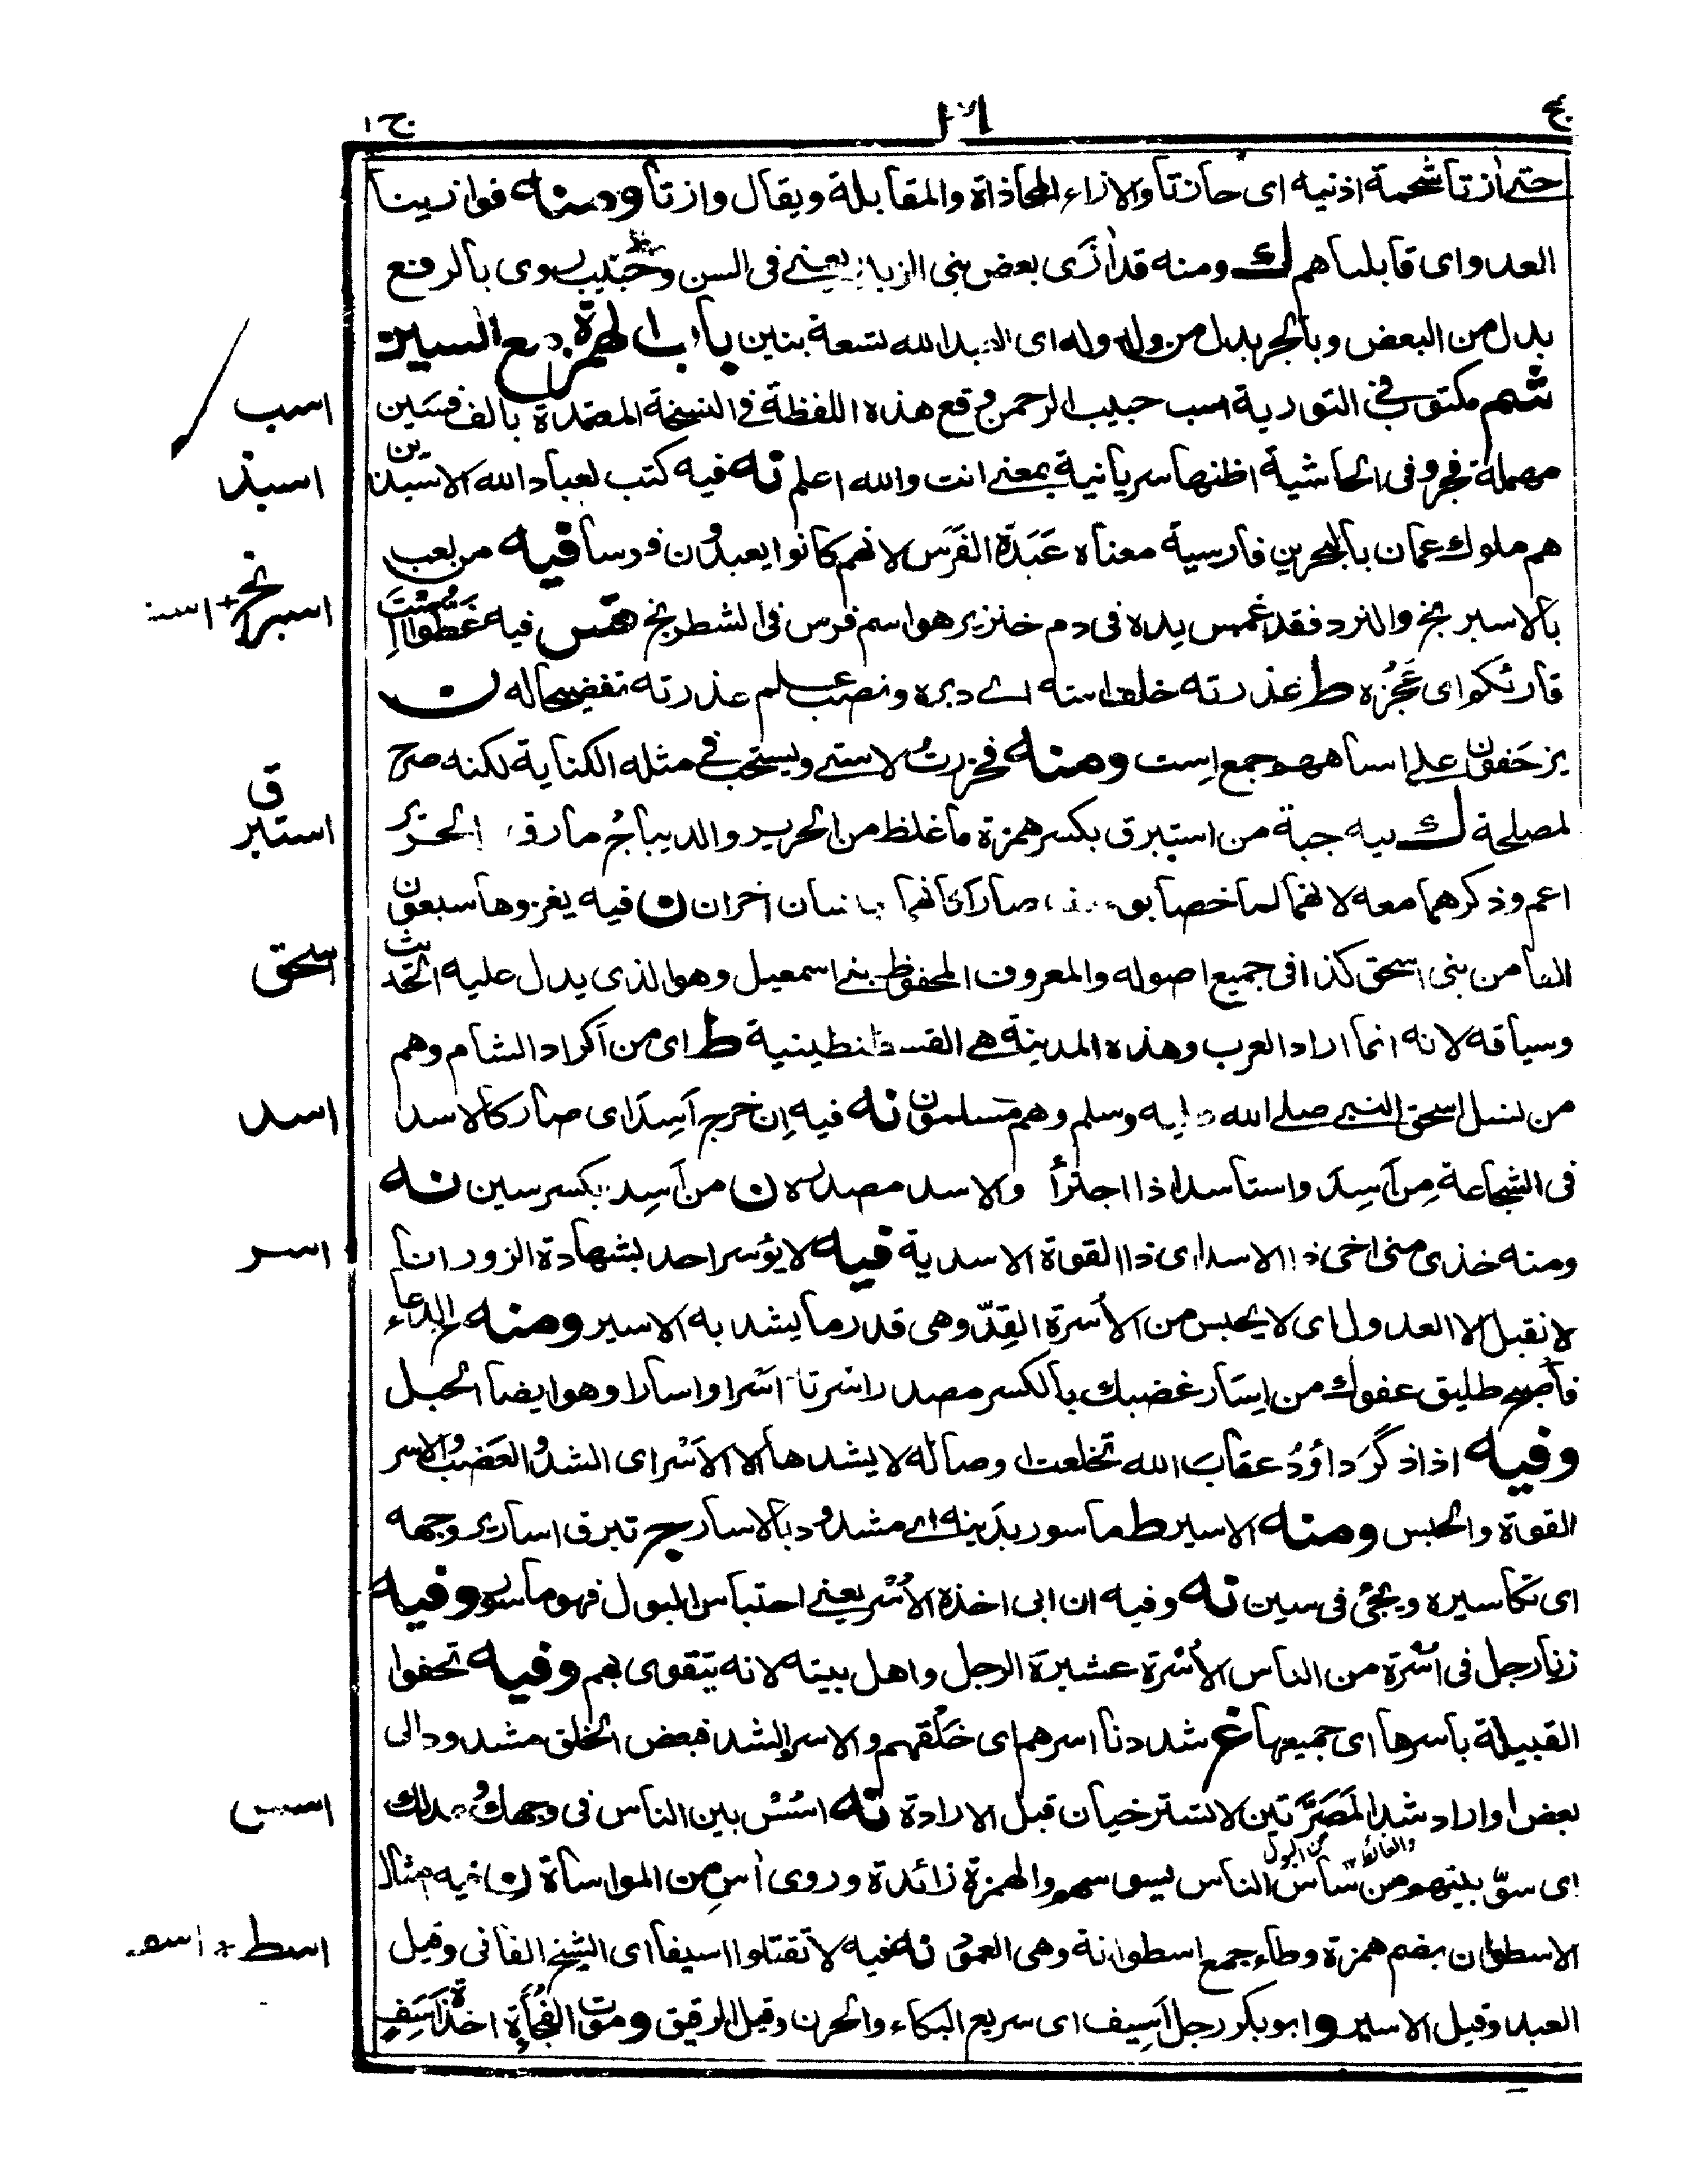 حتى ازتا شحمة اذنيه اى حازتا والازاء المحاذاة والمقابلة ويقال وازتا ومنه فوازينا
العدو اى قابلناهم ك ومنه قد ازى بعض بنى الزبير يعنى فى السن وخبيب روى بالرفع
بدل من البعض وبالجر بدل من وله وله اى لعبد الله تسعة بنين باب الهمزة مع السين
شم مكتوب فى التورية اسب حبيب الرحمن وقع هذه اللفظة فى النسخة المعتمدة بالف فسين
مهملة فجر وفى الحاشية اظنها سريانية بمعنى انت والله اعلم نه فيه كتب لعباد الله الاسبذين
هم ملوك عمان بالبحرين فارسية معناه عبدة الفرس لانهم كانوا يعبدون فرسا فيه من لعب
بالاسبرنج والنرد فقد غمس يده فى دم خنزير هو اسم فرس فى الشطرنج
قارئكم اى عجزه ط عذرته خلفها استه اى دبره ونصب علم عذرته تفضيحا له ن
يزحفون على استاههم جمع است ومنه فخررت لاستى ويستحب فى مثله الكناية لكنه صرح
لمصلحة ك فيه جبة من استبرق بكسر همزة ما غلظ من الحرير والديباج ما رق الحرير
اعم وذكرهما معه لانهما لما خصا صارا كانهما جنسان اخران ن فيه يغزوها سبعون
الفا من بنى اسحق كذا فى جميع اصوله والمعروف المحفوظ بنى اسمعيل وهو الذى يدل عليه الحديث
وسياقه لانه انما اراد العرب وهذه المدينة هى القسطنطينية ط اى من اكراد الشام وهم
من نسل اسحق النبى صلى الله عليه وسلم وهم مسلمون نه فيه ان خرج اسد اى صار كالاسد
فى الشجاعة من اسد واستاسد اذا اجترأ والاسد مصدره ن من اسد بكسر سين نه
ومنه خذى منى اخى ذا الاسد اى ذا القوة الاسدية فيه لا يؤسر احد بشهادة الزور انا
لا نقبل الا العدول اى لا يحبس من الأسرة القد وهى قدر ما يشد به الاسير ومنه ح الدعاء
فاصبح طليق عفوك من اسار غضبك بالكسر مصدر اسرته اسرا واسارا وهو ايضا الحبل
وفيه اذا ذكر داؤد عقاب الله تخلعت اوصاله لا يشدها الا الاسر اى الشد والعصب والاسر
القوة والحبس ومنه الاسير ط ماسور بدينه اى مشدود بالاسار ج تبرق اسارير وجهه
اى تكاسيره ويجئ فى سين نه وفيه ان ابى اخذه الأسر يعنى احتباس البول فهو ماسور وفيه
زنا رجل فى اسرة من الناس الأسرة عشيرة الرجل واهل بيته لانه يتقوى بهم وفيه تجفوا
القبيلة باسرها اى جميعها غ شددنا اسرهم اى خلقهم والاسر الشد فبعض الخلق مشدود الى
بعض او اراد شد المصرتين لا تسترخيان قبل الارادة نه اسس بين الناس فى وجهك وعدلك
من البول والغائط
اى سو بينهم من ساس الناس يسوسهم والهمزة زائدة وروى اس من المواساة ن فيه مثال
الاسطوان بضم همزة وطاء جمع اسطوانة وهى العمود نه فيه لا تقتلوا اسيفا اى الشيخ الفانى وقيل
العبد وقيل الاسير وابو بكر رجل اسيف اى سريع البكاء والحزن وقيل الرقيق وموت الفجأة اخذة اسف
اسب
اسبذ
اسبرنج
استبرق
اسحق
اسد
اسر
اسس
اسط
ج ا